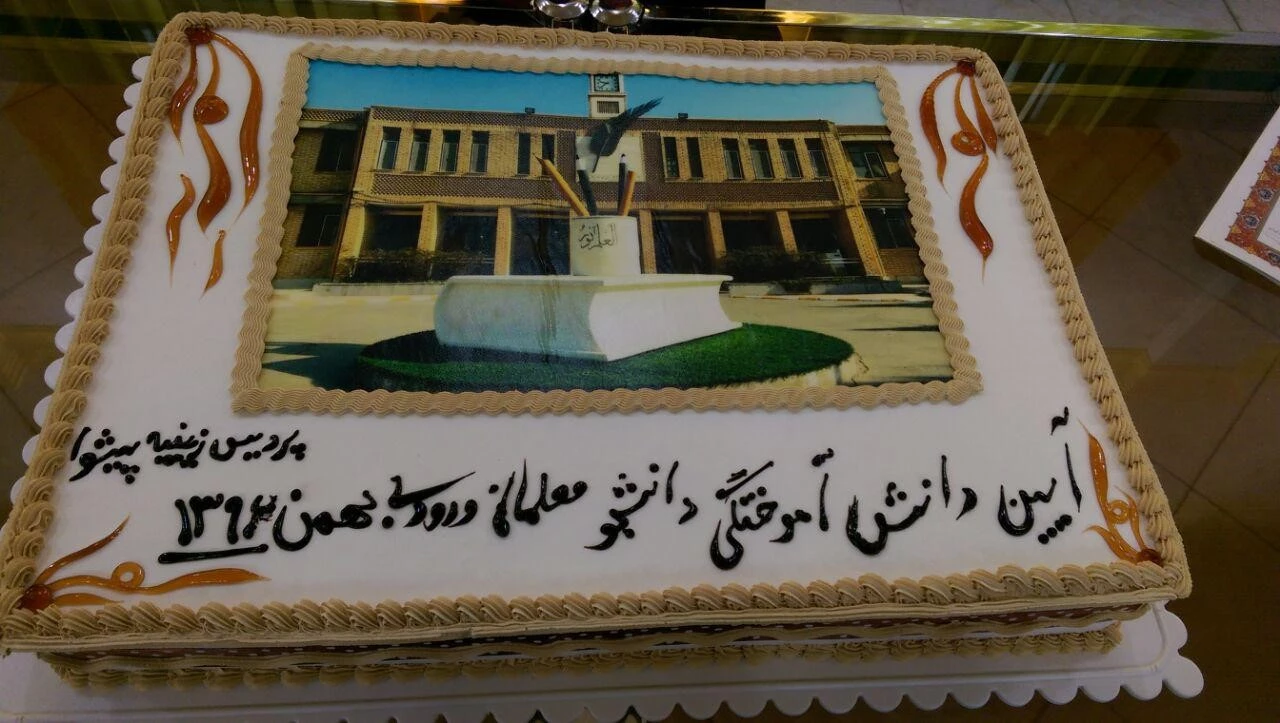 العلم نورٌ
آیین دانش آموختگی دانشجو معلمان ورودی بهمن ۱۳۹۲
پردیس زینبیه پیشوا